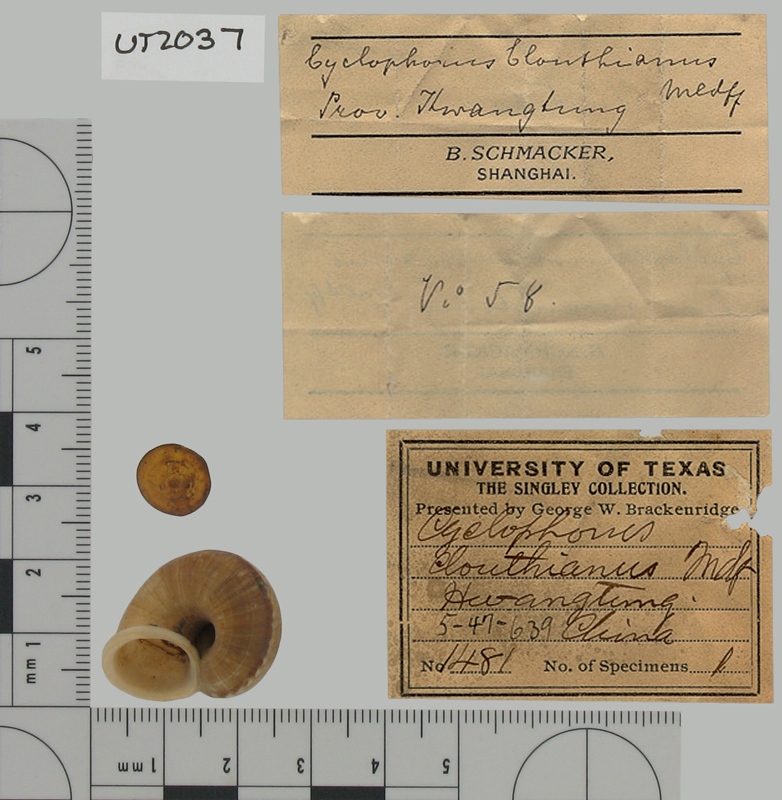 UT2037
Cyclophorus Clouthianus
Mldff
Prov. Kwangtung
B. SCHMACKER,
SHANGHAI.
No 58.
UNIVERSITY OF TEXAS
THE SINGLEY COLLECTION.
Presented by George W. Brackenridge
Cyclophorus
Clouthianus Mdf
Hwangtung.
5-47-639 China
No 1481 No. of Specimens 1
5
4
3
2
mm 1
mm 1
2
3
4
5